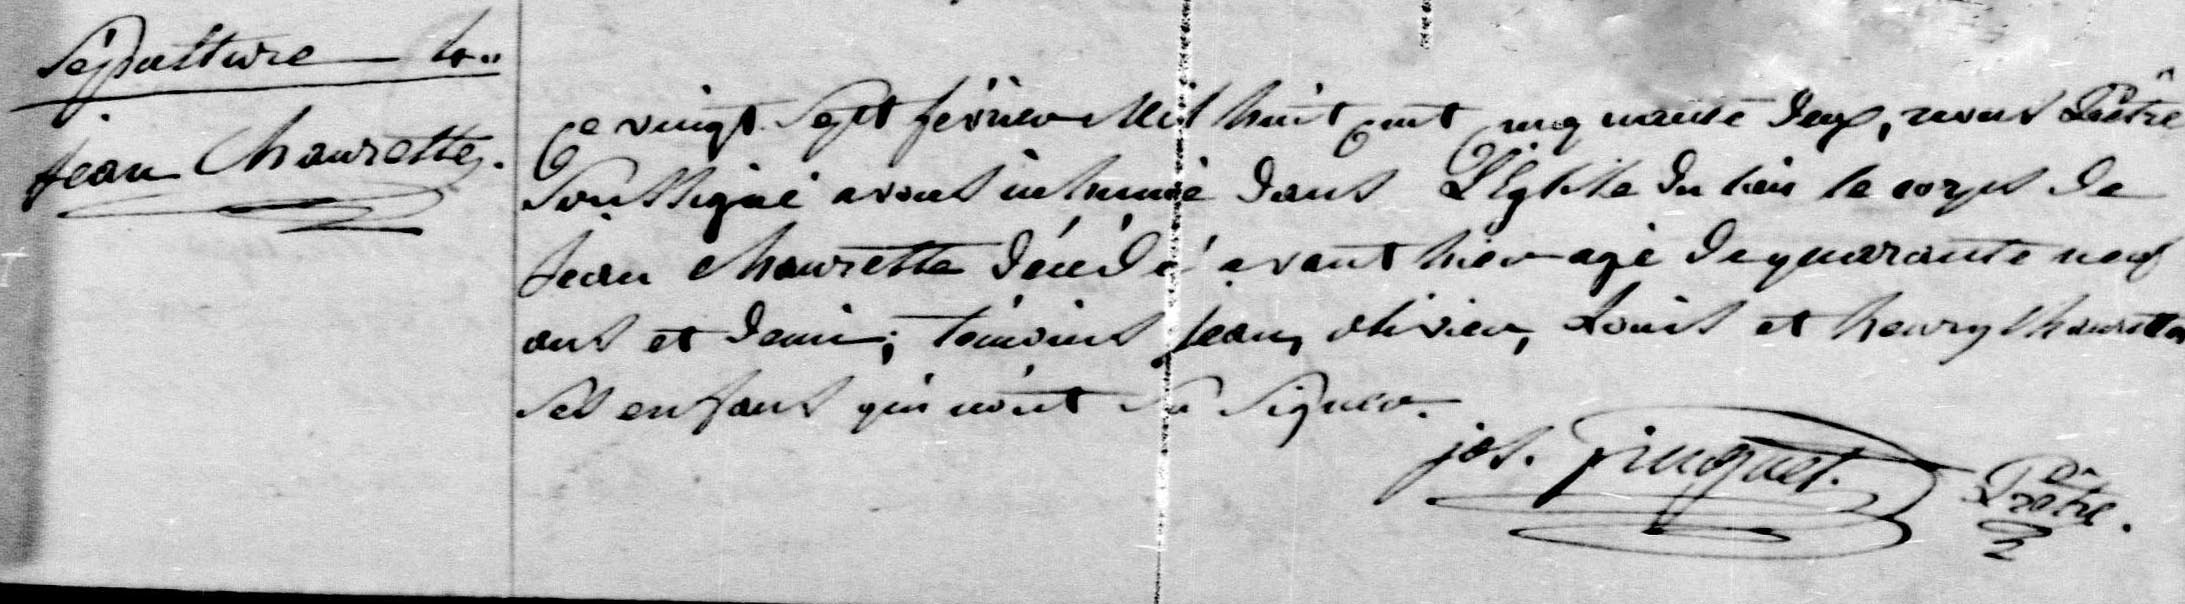 Sépulture — 4..
Jean Chaurette.
Ce vingt sept février Mil huit cent cinq uante deux, nous Prêtre
Soussigné avons inhumé dans L'Eglise du lieu le corps de
Jean Chaurette décédé avant hier agé de quarante neuf
ans et demi; témoins Jean, olivier, Louis et henry Chaurette
ses enfans qui n'ont su signer.
jos. Prêtre.